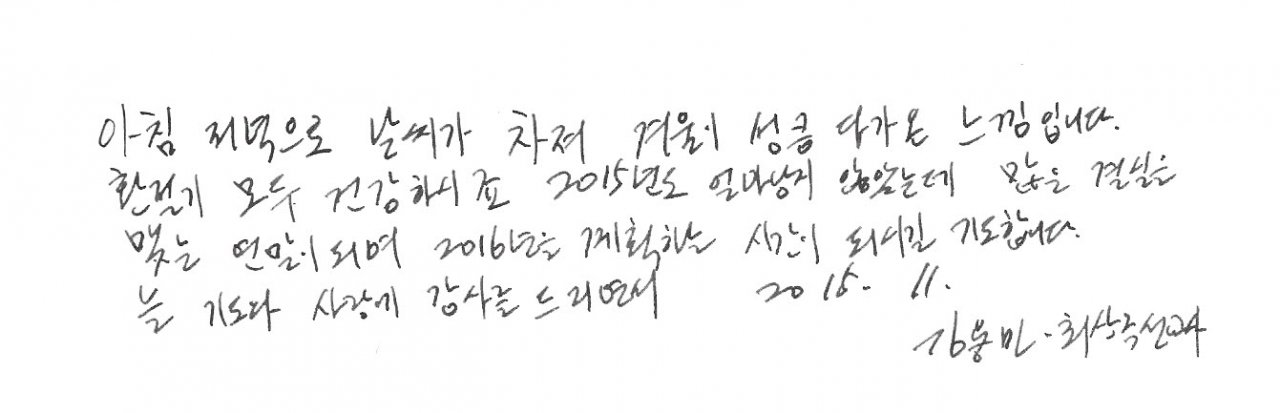 아침 저녁으로 날씨가 차져 겨울이 성큼 다가온 느낌입니다.
환절기 모두 건강하시죠 2015년도 얼마남지 않았는데 많은 결실을
맺는 연말이 되며 2016년을 계획하는 시간이 되시길 기도합니다.
늘 기도와 사랑에 감사를 드리면서 2015. 11.
김용민·최상국선교사